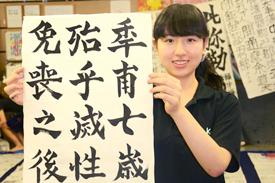 秊甫七歳
殆乎滅性
免喪之後